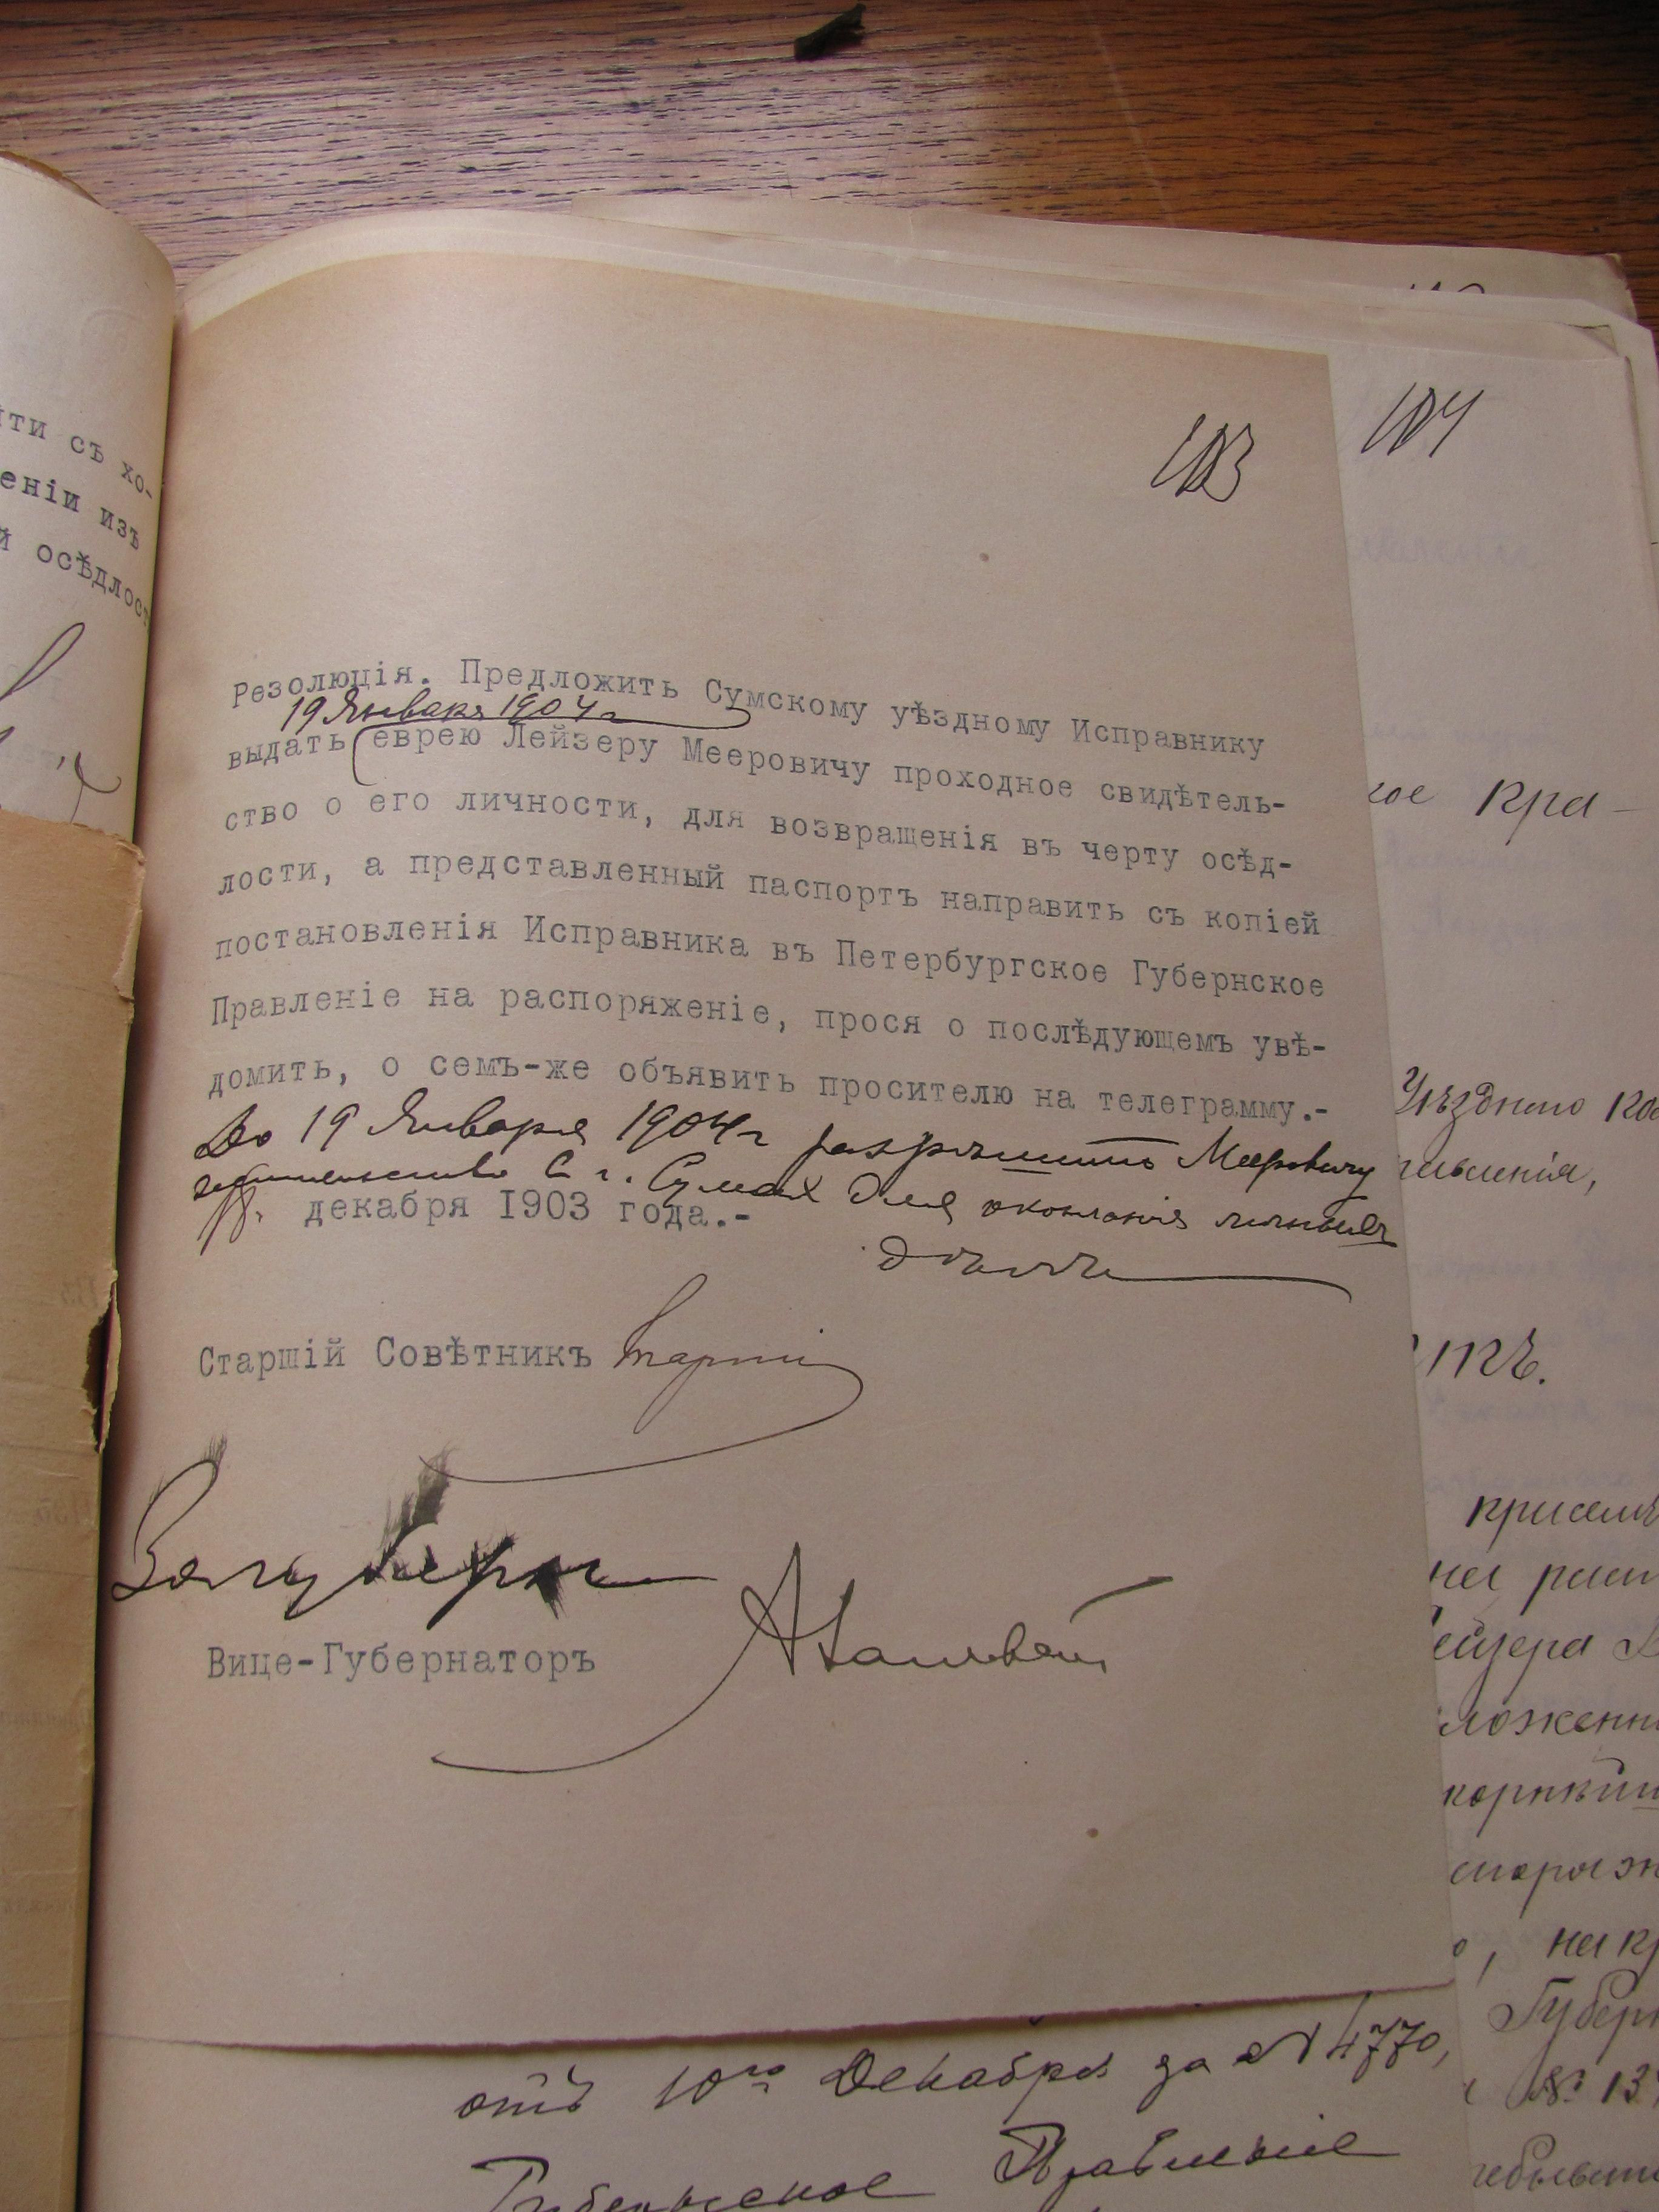 йти съ хо-
еніи изъ
й осѣдлост
103
104
Резолюція. Предложить Сумскому уѣздному Исправнику
19 Января 1904 г
выдать еврею Лейзеру Мееровичу проходное свидѣтель-
ство о его личности, для возвращенія въ черту осѣд-
лости, а представленный паспортъ направить съ копіей
постановленія Исправника въ Петербургское Губернское
Правленіе на распоряженіе, прося о послѣдующемъ увѣ-
домить, о семъ-же объявить просителю на телеграмму.-
До 19 Января 1904 г разрѣшить Мееровичу
жительство в г. Сумах для окончанія личныхъ
дѣлъ
18. декабря 1903 года.-
Старшій Совѣтникъ
За губерн
Вице-Губернаторъ
отъ 10го Декабря за № 4770,
Губернское Правленіе
гое кра-
Уѣздного
вленія,
на
ейзера
ложенн
, на
Губерн
№ 13